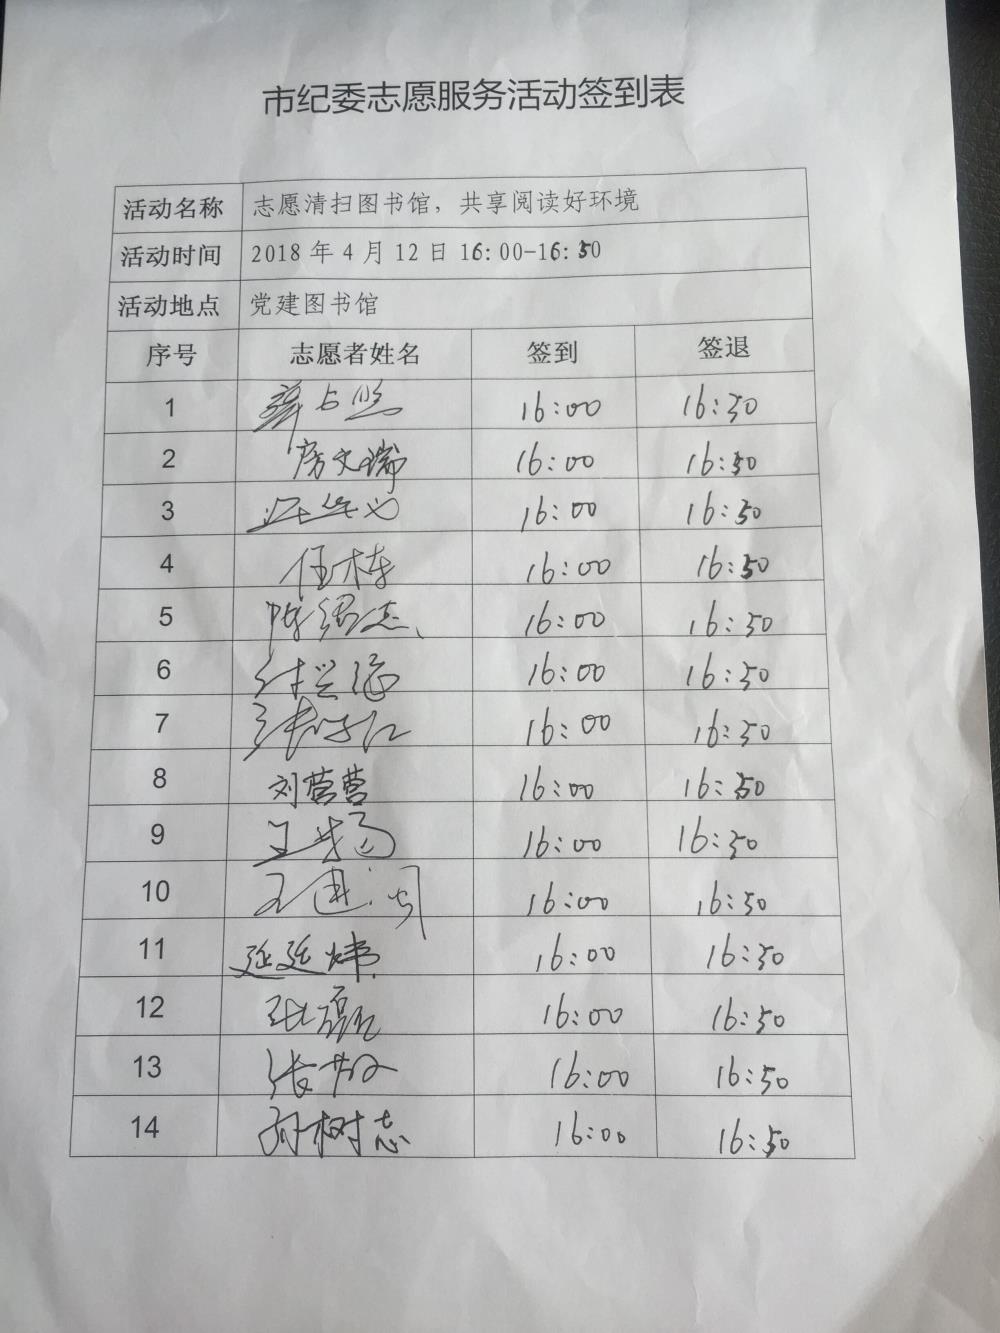 市纪委志愿服务活动签到表
活动名称 志愿清扫图书馆，共享阅读好环境
活动时间 2018 年 4 月 12 日 16：00-16：50
活动地点 党建图书馆
序号 志愿者姓名 签到 签退
1 16:00 16:50
2 房文瑞 16:00 16:50
3 16:00 16:50
4 任栋 16:00 16:50
5 16:00 16:50
6 16:00 16:50
7 16:00 16:50
8 刘营营 16:00 16:50
9 王扬 16:00 16:50
10 16:00 16:50
11 延廷炜 16:00 16:50
12 张磊 16:00 16:50
13 16:00 16:50
14 孙树志 16:00 16:50